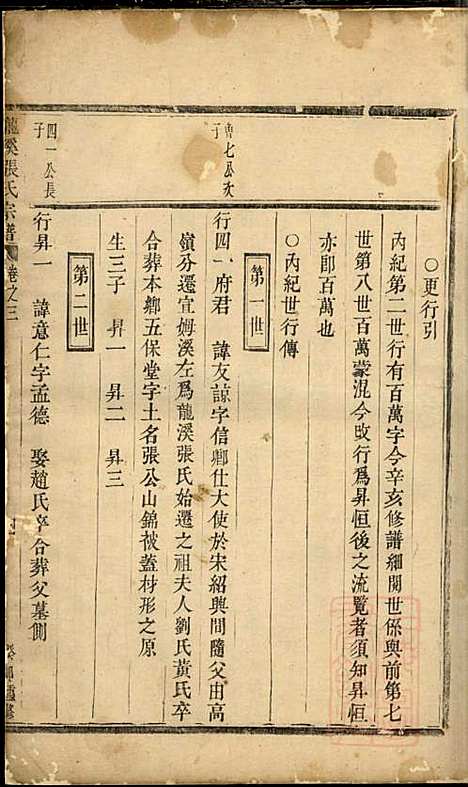 ○更行引
內紀第二世行有百萬字今辛亥修譜細閱世係與前第七
世第八世百萬蒙混今改行爲昇恒後之流覽者須知昇恒
亦卽百萬也
○內紀世行傳
第一世
曹七公次
子
行四一府君　諱友諒字信卿仕大使於宋紹興間隨父由高
嶺分遷宜姆溪左爲龍溪張氏始遷之祖夫人劉氏黃氏卒
合葬本鄉五保堂字土名張公山錦被蓋材形之原
生三子　昇一　昇二　昇三
第二世
四一公長
子
行昇一　諱意仁字孟德　娶趙氏卒合葬父墓側
龍溪張氏宗譜　卷之三